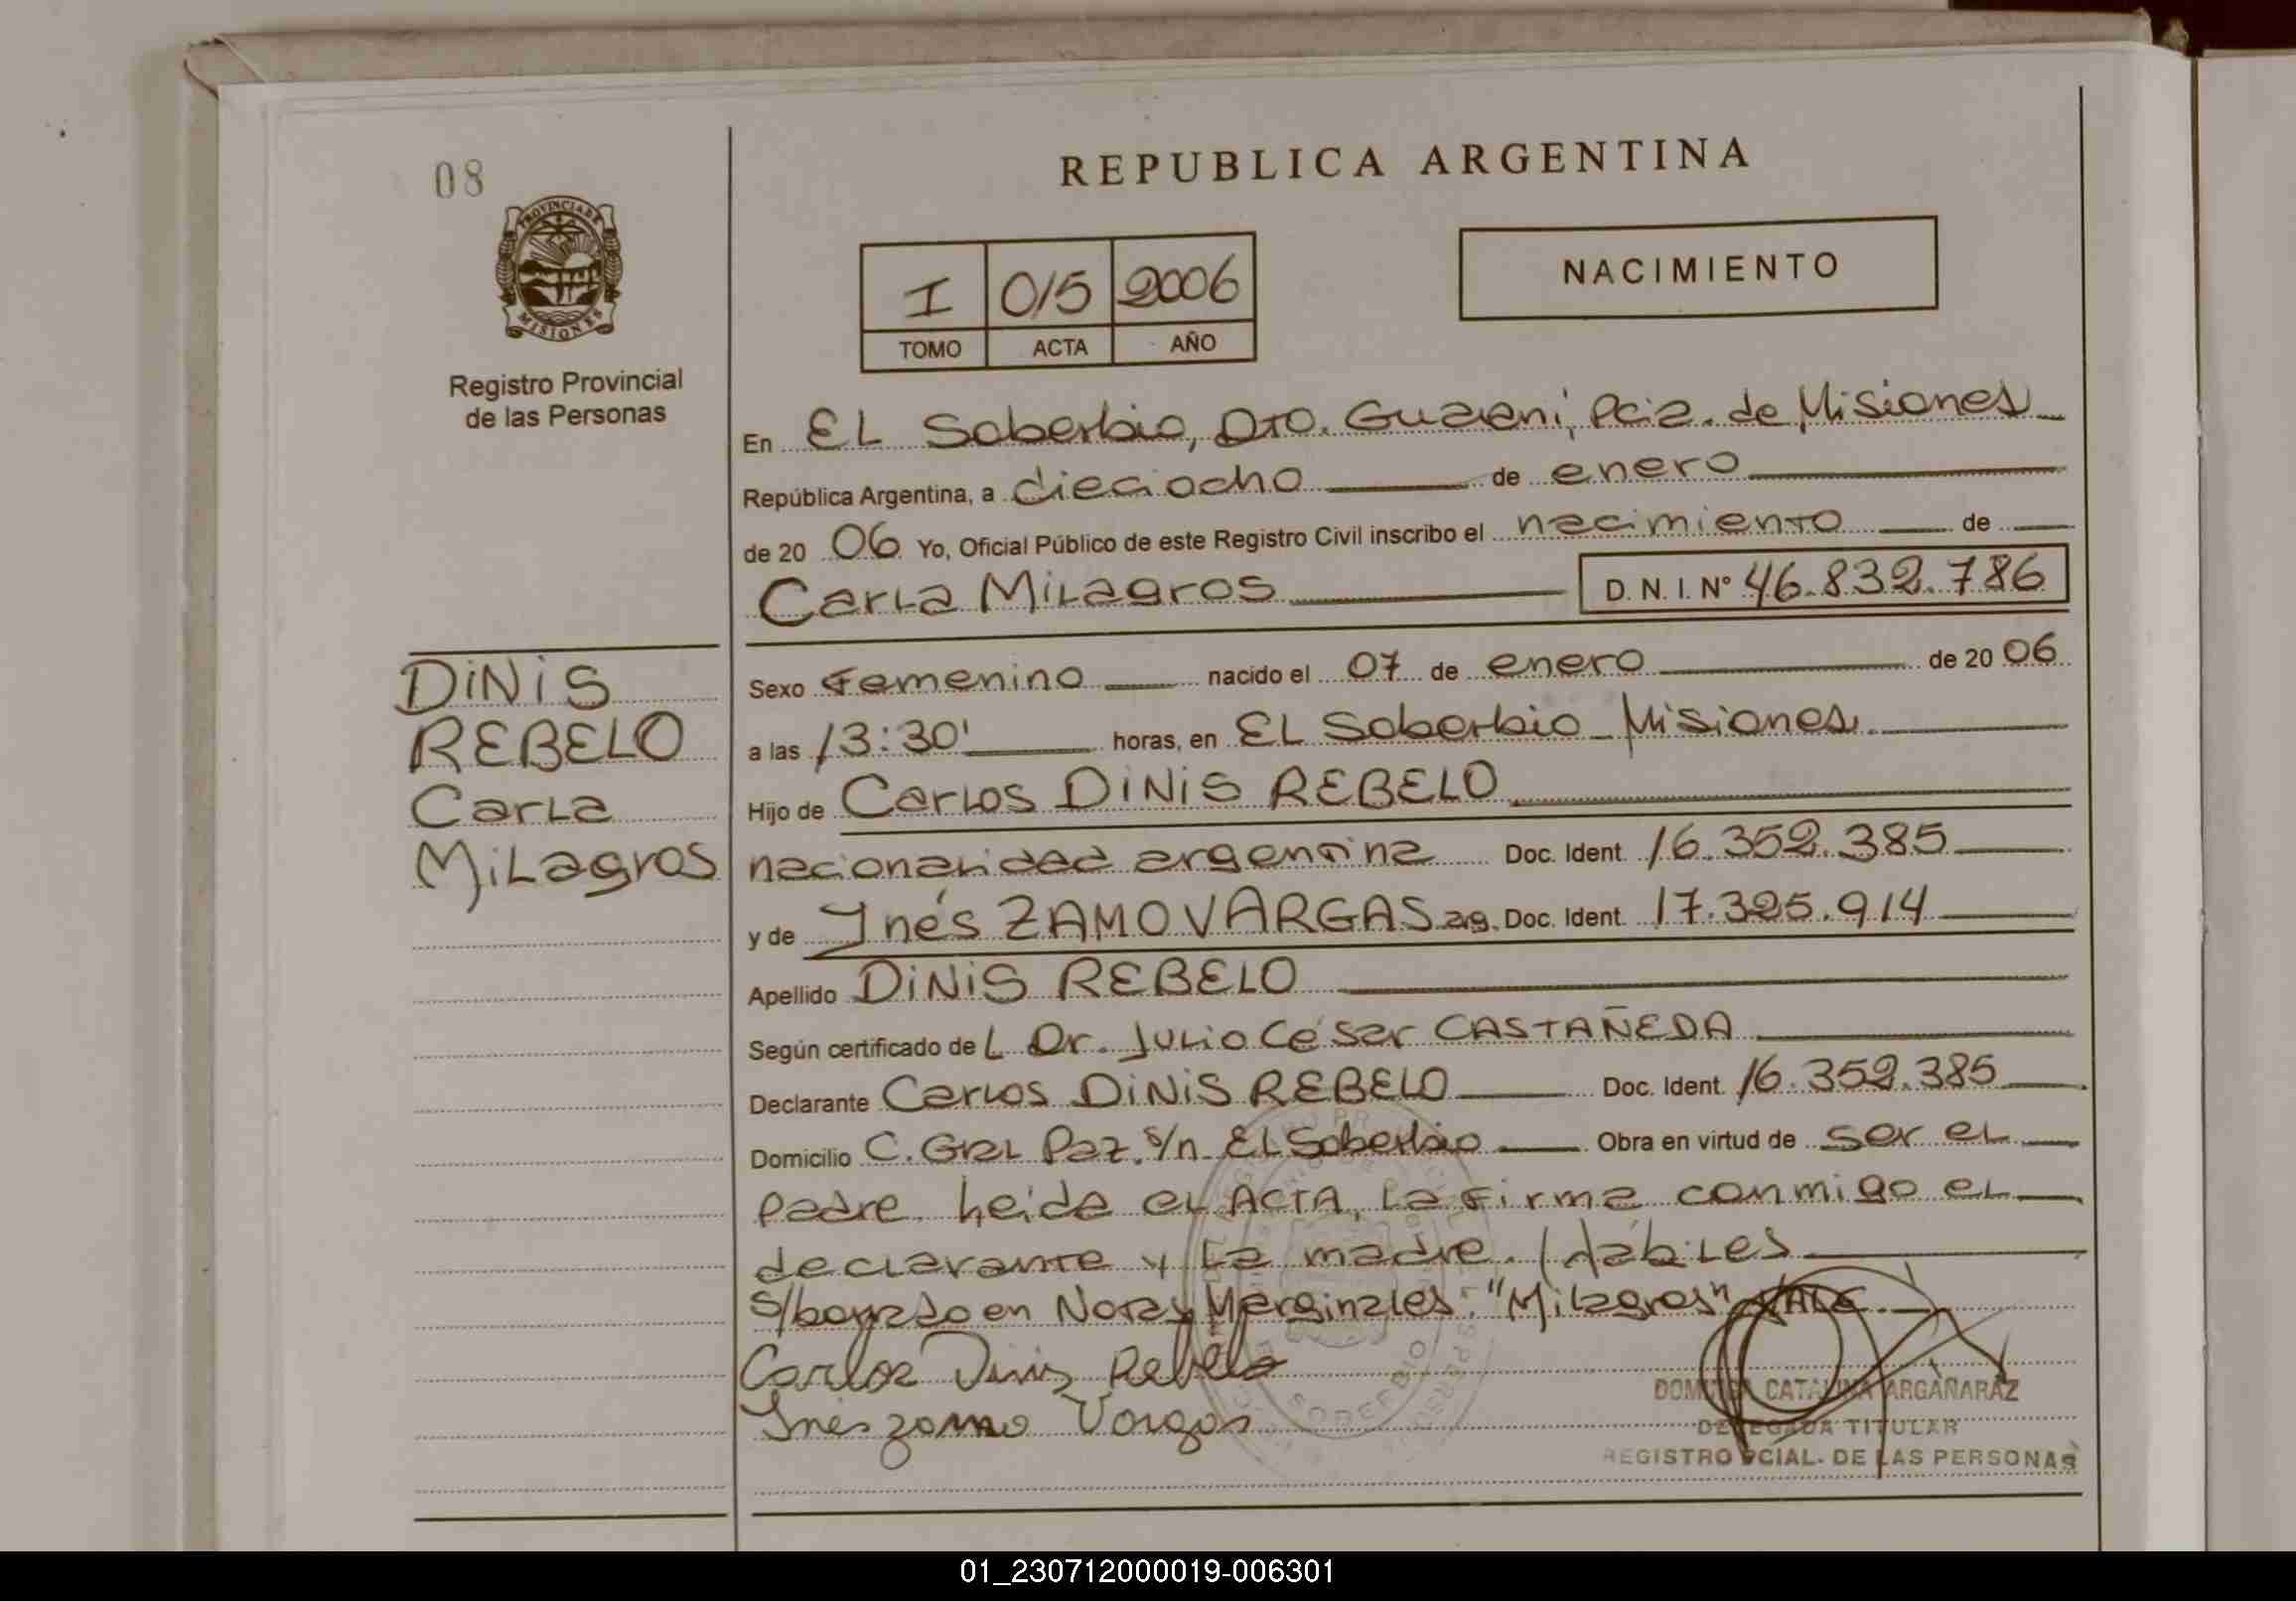 08
PROVINCIA DE
MISIONES
Registro Provincial
de las Personas
DINIS
REBELO
Carla
Milagros
REPUBLICA ARGENTINA
I 015 2006
TOMO ACTA AÑO
NACIMIENTO
En EL Soberbio, Dto. Guaraní, Pcia. de Misiones
República Argentina, a dieciocho de enero
de 20 06 Yo, Oficial Público de este Registro Civil inscribo el nacimiento de
Carla Milagros D.N.I. Nº 46.832.786
Sexo Femenino nacido el 07 de enero de 20 06
a las 13:30' horas, en EL Soberbio - Misiones.
Hijo de Carlos DINIS REBELO
nacionalidad argentina Doc. Ident. 16.352.385
y de Inés ZAMO VARGAS arg. Doc. Ident. 17.325.914
Apellido DINIS REBELO
Según certificado de L Dr. Julio César CASTAÑEDA
Declarante Carlos DINIS REBELO Doc. Ident. 16.352.385
Domicilio C. Gral Paz. s/n EL Soberbio Obra en virtud de ser el
padre. Leida el ACTA, la firma conmigo el
declarante y la madre. Hábiles
s/borrado en Notas Marginales: "Milagros" VALE.
Carlos Dinis Rebelo
Ines zamo Vargas
DOMITILA CATALINA ARGAÑARAZ
DELEGADA TITULAR
REGISTRO PCIAL. DE LAS PERSONAS
01_230712000019-006301